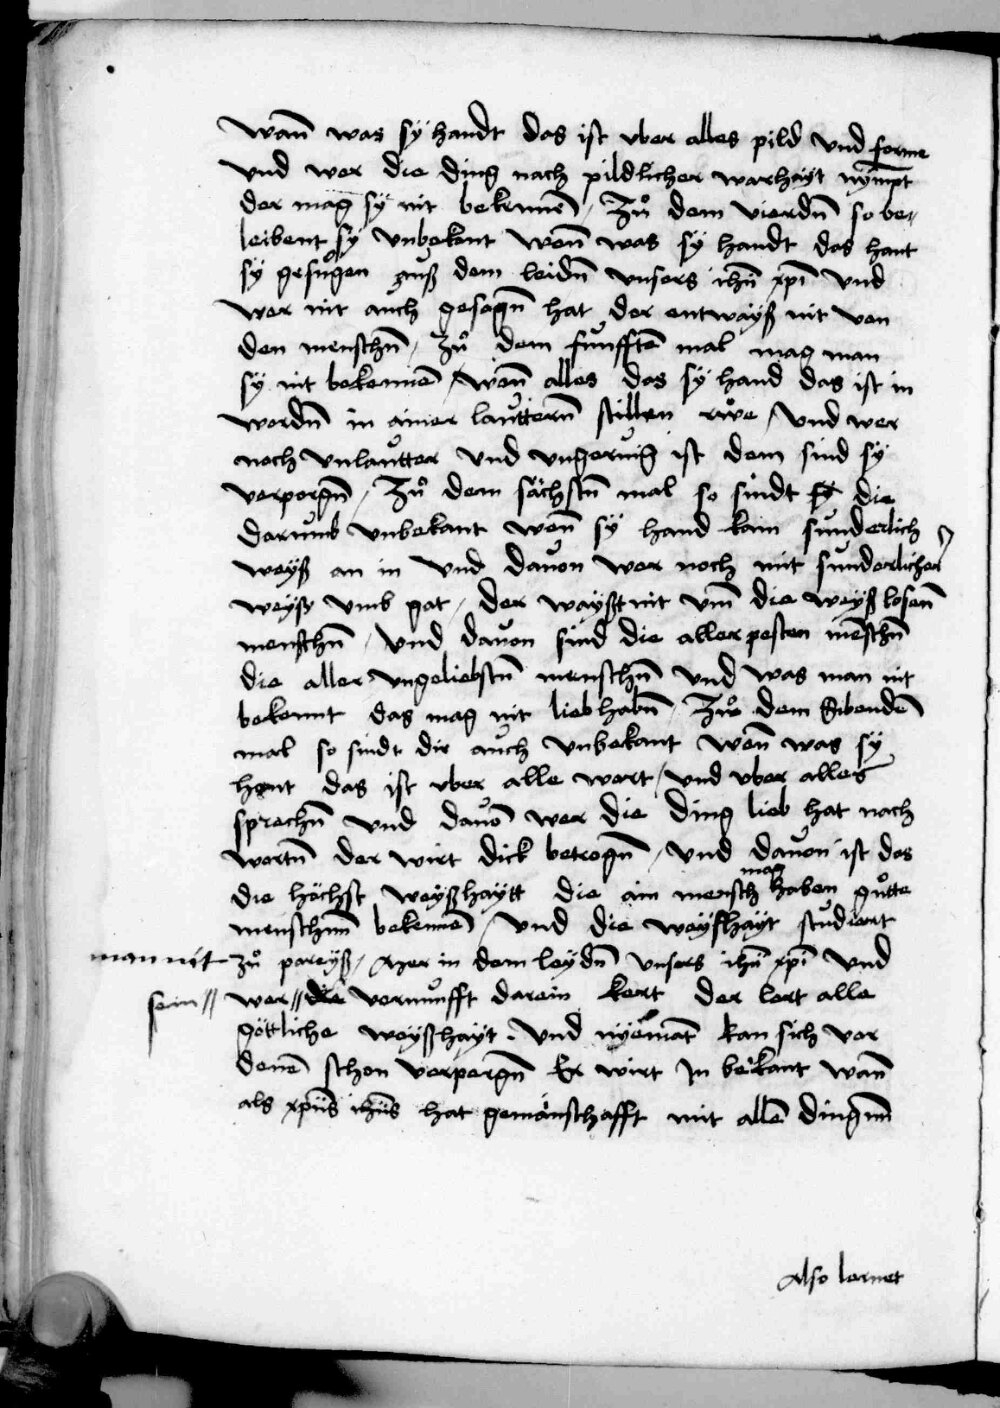 wan̄ was sÿ handt das ist vber alles pild vnd forme
vnd wer die ding nach pildlicher warhaÿt nÿmpt
der mag sÿ nit bekennē / Zů dem vierdn̄ so be-
leibent sÿ vnbekant wen̄ was sÿ handt das hant
sÿ gesůgen auß dem leidn̄ vnsers ihū xpī vnd
wer nit auch gesogn̄ hat der entwaÿß nit von
den menschn̄ / Zů dem fünfften mal mag man
sÿ nit bekennē / wen̄ alles das sÿ hand das ist in
wordn̄ in ainer lauttern̄ stillen růe / vnd wer
noch vnlautter vnd vngeruig ist dem sind sÿ
verporgn̄ / Zů dem sächstn̄ mal so sindt sÿ die
darumb vnbekant wen̄ sÿ hand kain sunderlich
weÿß an in vnd dauon wer noch mit sunderlicher
weÿß vmb gat / der waÿßt nit vm̄ die weÿßlosen̄
menschn̄ / vnd dauon sind die aller pesten mēschn̄
die aller vngeliebstn̄ menschn̄ vnd was man nit
bekennt das mag nit lieb habn̄ / Zů dem sibendē
mal so sindt die auch vnbekant wen̄ was sÿ
hant das ist vber alle wort / vnd vber alles
sprechn̄ vnd dauō wer die ding lieb hat nach
wortn̄ der wirt dick betrogn̄ / vnd dauon ist das
die höchst weÿßhaÿtt die ain mensch mag haben gůtte
menschnn̄ bekennē / vnd die weÿßhaÿt studiert
man nit zů pareÿß / Aber in dem leÿdn̄ vnsers ihū xpī vnd
wer // die sein // vernunfft darein kert der lert alle
göttliche weÿßhaÿt . vnd nÿemāt kan sich vor
denē schon verpergn̄ Er wirt In bekant wan̄
als xp̄us ihūs hat gemainschafft mit allē dingnn̄
Also lernet